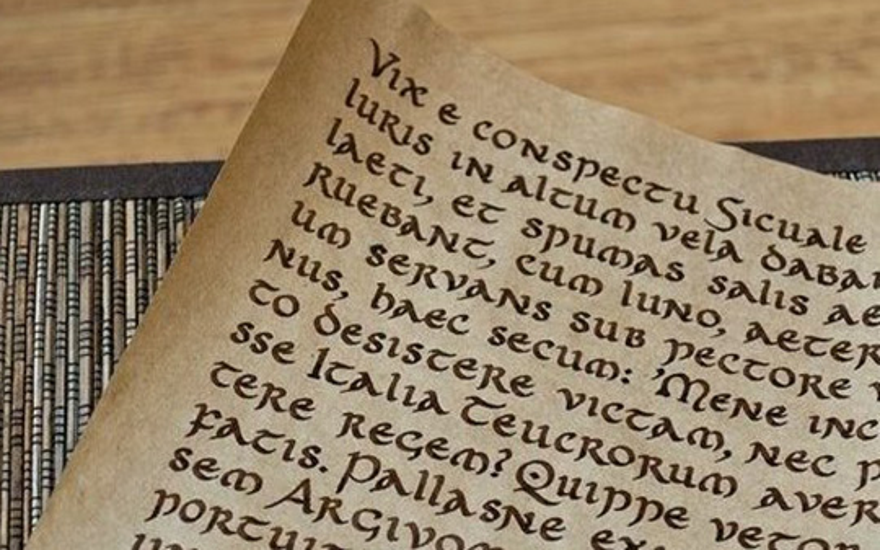 Vix e conspectu Sicuale
luris in altum vela daban
laeti, et spumas salis ae
ruebant, cum Iuno, aeter
um servans sub pectore v
nus, haec secum: 'Mene inc
to desistere victam, nec p
sse Italia Teucrorum aver
tere regem? Quippe vetor
fatis. Pallasne ex
sem Argivom
portuit